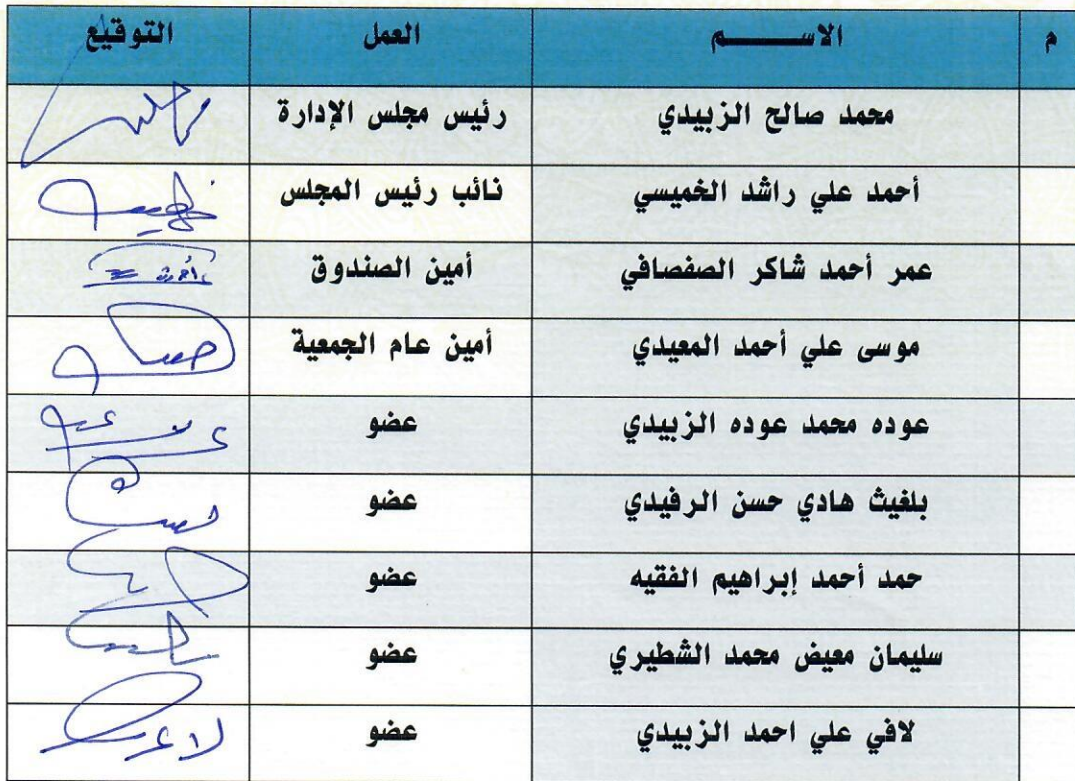 م الاســـــم العمل التوقيع
محمد صالح الزبيدي رئيس مجلس الإدارة
أحمد علي راشد الخميسي نائب رئيس المجلس
عمر أحمد شاكر الصفصافي أمين الصندوق
موسى علي أحمد المعيدي أمين عام الجمعية
عوده محمد عوده الزبيدي عضو
بلغيث هادي حسن الرفيدي عضو
حمد أحمد إبراهيم الفقيه عضو
سليمان معيض محمد الشطيري عضو
لافي علي احمد الزبيدي عضو